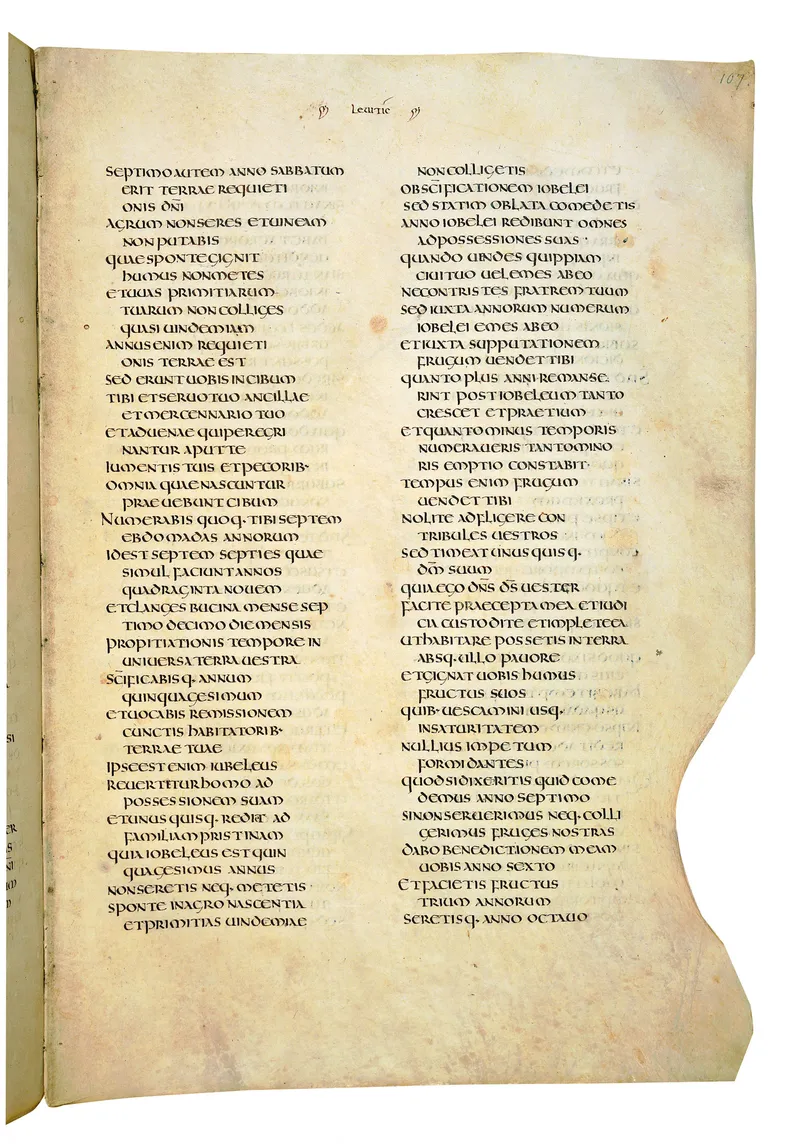 107
Leuitic
SEPTIMO AUTEM ANNO SABBATUM
ERIT TERRAE REQUIETI
ONIS DN̄I
AGRUM NON SERES ET UINEAM
NON PUTABIS
QUAE SPONTE GIGNIT
HUMUS NON METES
ET UUAS PRIMITIARUM
TUARUM NON COLLIGES
QUASI UINDEMIAM
ANNUS ENIM REQUIETI
ONIS TERRAE EST
SED ERUNT UOBIS IN CIBUM
TIBI ET SERUO TUO ANCILLAE
ET MERCENNARIO TUO
ET ADUENAE QUI PEREGRI
NANTUR APUT TE
IUMENTIS TUIS ET PECORIB·
OMNIA QUAE NASCUNTUR
PRAEUEBUNT CIBUM
NUMERABIS QUOQ· TIBI SEPTEM
EBDOMADAS ANNORUM
ID EST SEPTEM SEPTIES QUAE
SIMUL FACIUNT ANNOS
QUADRAGINTA NOUEM
ET CLANGES BUCINA MENSE SEP
TIMO DECIMO DIE MENSIS
PROPITIATIONIS TEMPORE IN
UNIUERSA TERRA UESTRA
SC̄IFICABISQ· ANNUM
QUINQUAGESIMUM
ET UOCABIS REMISSIONEM
CUNCTIS HABITATORIB·
TERRAE TUAE
IPSE EST ENIM IUBELEUS
REUERTITUR HOMO AD
POSSESSIONEM SUAM
ET UNUSQUISQ· REDIET AD
FAMILIAM PRISTINAM
QUIA IOBELEUS EST QUIN
QUAGESIMUS ANNUS
NON SERETIS NEQ· METETIS·
SPONTE IN AGRO NASCENTIA
ET PRIMITIAS UINDEMIAE
NON COLLIGETIS
OB SC̄IFICATIONEM IOBELEI
SED STATIM OBLATA COMEDETIS
ANNO IOBELEI REDIBUNT OMNES
AD POSSESSIONES SUAS·
QUANDO UENDES QUIPPIAM
CIUI TUO UEL EMES AB EO
NE CONTRISTES FRATREM TUUM
SED IUXTA ANNORUM NUMERUM
IOBELEI EMES AB EO
ET IUXTA SUPPUTATIONEM
FRUGUM UENDET TIBI
QUANTO PLUS ANNI REMANSE
RINT POST IOBELEUM TANTO
CRESCET ET PRAETIUM
ET QUANTO MINUS TEMPORIS
NUMERAUERIS TANTO MINO
RIS EMPTIO CONSTABIT·
TEMPUS ENIM FRUGUM
UENDET TIBI
NOLITE ADFLIGERE CON
TRIBULES UESTROS
SED TIMEAT UNUSQUISQ·
DM̄ SUUM
QUIA EGO DN̄S DS̄ UESTER
FACITE PRAECEPTA MEA ET IUDI
CIA CUSTODITE ET IMPLETE EA
UT HABITARE POSSETIS IN TERRA
ABSQ· ULLO PAUORE
ET GIGNAT UOBIS HUMUS
FRUCTUS SUOS
QUIB· UESCAMINI USQ·
IN SATURITATEM
NULLIUS IMPETUM
FORMIDANTES
QUOD SI DIXERITIS QUID COME
DEMUS ANNO SEPTIMO
SI NON SERUERIMUS NEQ· COLLI
GERIMUS FRUGES NOSTRAS
DABO BENEDICTIONEM MEAM
UOBIS ANNO SEXTO
ET FACIETIS FRUCTUS
TRIUM ANNORUM
SERETISQ· ANNO OCTAUO